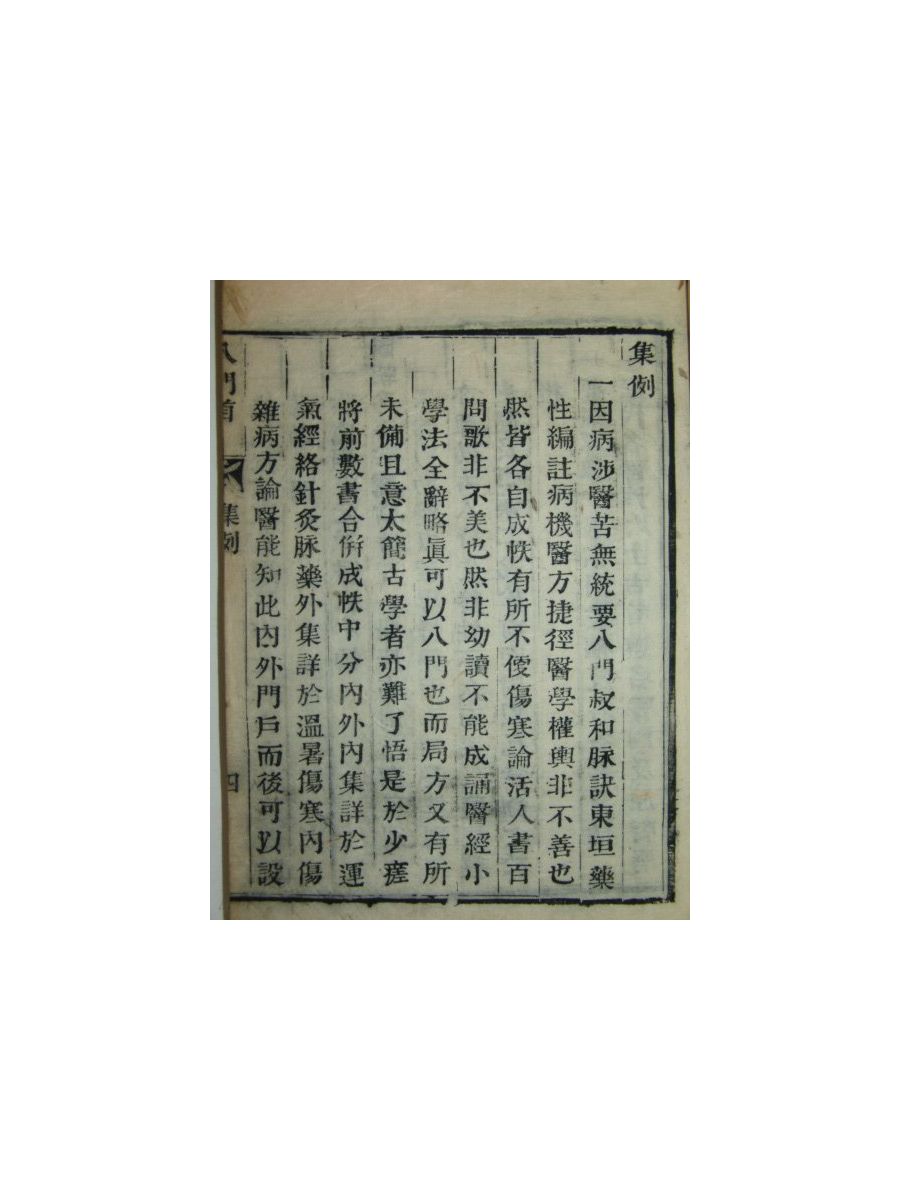 集例
一因病涉醫苦無統要八門叔和脉訣東垣藥
性編註病機醫方捷徑醫學權輿非不善也
然皆各自成帙有所不便傷寒論活人書百
問歌非不美也然非幼讀不能成誦醫經小
學法全辭略眞可以八門也而局方又有所
未備且意太簡古學者亦難了悟是於少瘥
將前數書合倂成帙中分內外內集詳於運
氣經絡針灸脉藥外集詳於溫暑傷寒內傷
雜病方論醫能知此內外門戶而後可以設
八門首 集例 四